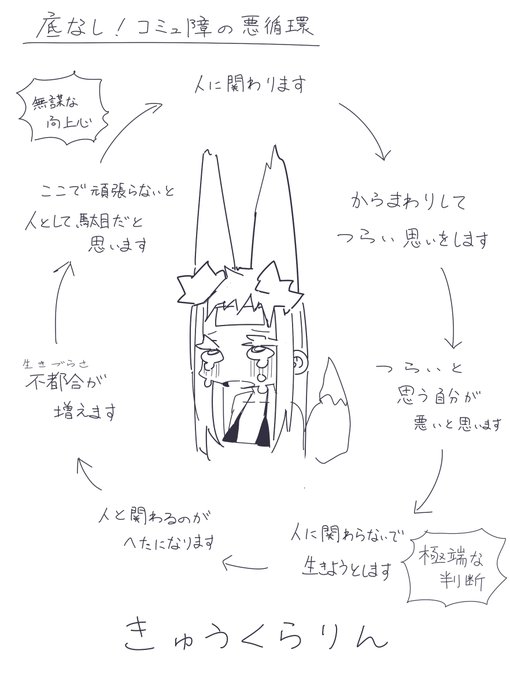 底なし！コミュ障の悪循環
人に関わります
からまわりして
つらい思いをします
つらいと
思う自分が
悪いと思います
人に関わらないで
生きようとします
極端な
判断
人と関わるのが
へたになります
生きづらさ
不都合が
増えます
ここで頑張らないと
人として駄目だと
思います
無謀な
向上心
きゅうくらりん